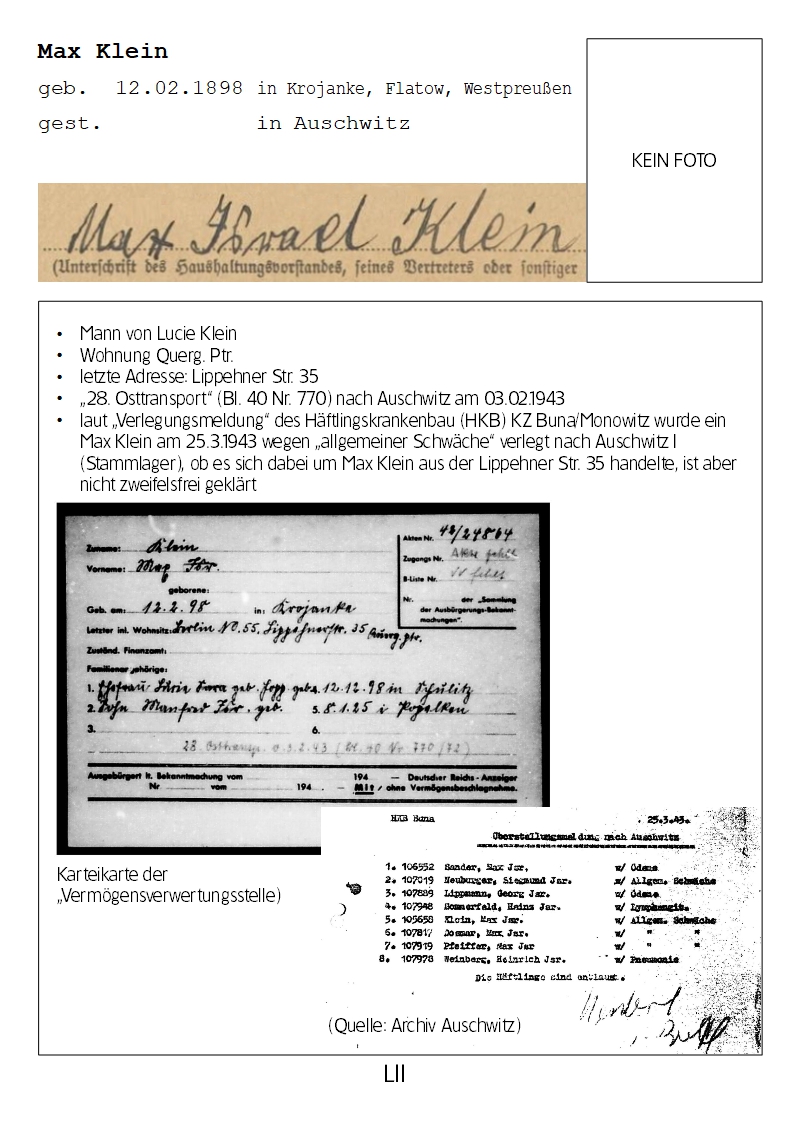 Max Klein
geb. 12.02.1898 in Krojanke, Flatow, Westpreußen
gest. in Auschwitz
KEIN FOTO
Max Israel Klein
(Unterschrift des Haushaltungsvorstandes, seines Vertreters oder sonstiger
• Mann von Lucie Klein
• Wohnung Querg. Ptr.
• letzte Adresse: Lippehner Str. 35
• „28. Osttransport“ (Bl. 40 Nr. 770) nach Auschwitz am 03.02.1943
• laut „Verlegungsmeldung“ des Häftlingskrankenbau (HKB) KZ Buna/Monowitz wurde ein
Max Klein am 25.3.1943 wegen „allgemeiner Schwäche“ verlegt nach Auschwitz I
(Stammlager), ob es sich dabei um Max Klein aus der Lippehner Str. 35 handelte, ist aber
nicht zweifelsfrei geklärt
Akten Nr. 42/24864
Zuname: Klein
Zugangs Nr. Akte fehlt
Vorname: Max Isr.
B-Liste Nr. fehlt
geborene:
Nr. der „Sammlung
der Ausbürgerungs-Bekannt-
machungen“.
Geb. am: 12.2.98 in: Krojanke
Letzter inl. Wohnsitz: Berlin NO.55, Lippehnerstr. 35 Querg. ptr.
Zuständ. Finanzamt:
1. Ehefrau Sara geb. 4. 12.12.98 in Schulitz
2. Sohn Manfred Isr. geb. 5. 8.1.25 i
3. 6.
28. Osttransp. v. 3.2.43 (Bl. 40 Nr 770/72)
Ausgebürgert lt. Bekanntmachung vom 194 — Deutscher Reichs-Anzeiger
Nr vom 194 — Mit / ohne Vermögensbeschlagnahme.
Karteikarte der
„Vermögensverwertungsstelle)
HKB Buna 25.3.43.
Überstellungsmeldung nach Auschwitz
1. 106552 Sander, Max Jsr. w/ Ödeme
2. 107019 Neuburger, Siegmund Jsr. w/ Allgem. Schwäche
3. 107889 Lippmann, Georg Jsr. w/ Ödeme
4. 107948 Sommerfeld, Heinz Jsr. w/ Lymphangit.
5. 105658 Klein, Max Jsr. w/ Allgem. Schwäche
6. 107817 Jsr. w/ " "
7. 107919 Pfeiffer, Max Jsr w/ " "
8. 107978 Weinberg, Heinrich Jsr. w/ Pneumonie
Die Häftlinge sind entlaust.
(Quelle: Archiv Auschwitz)
LII